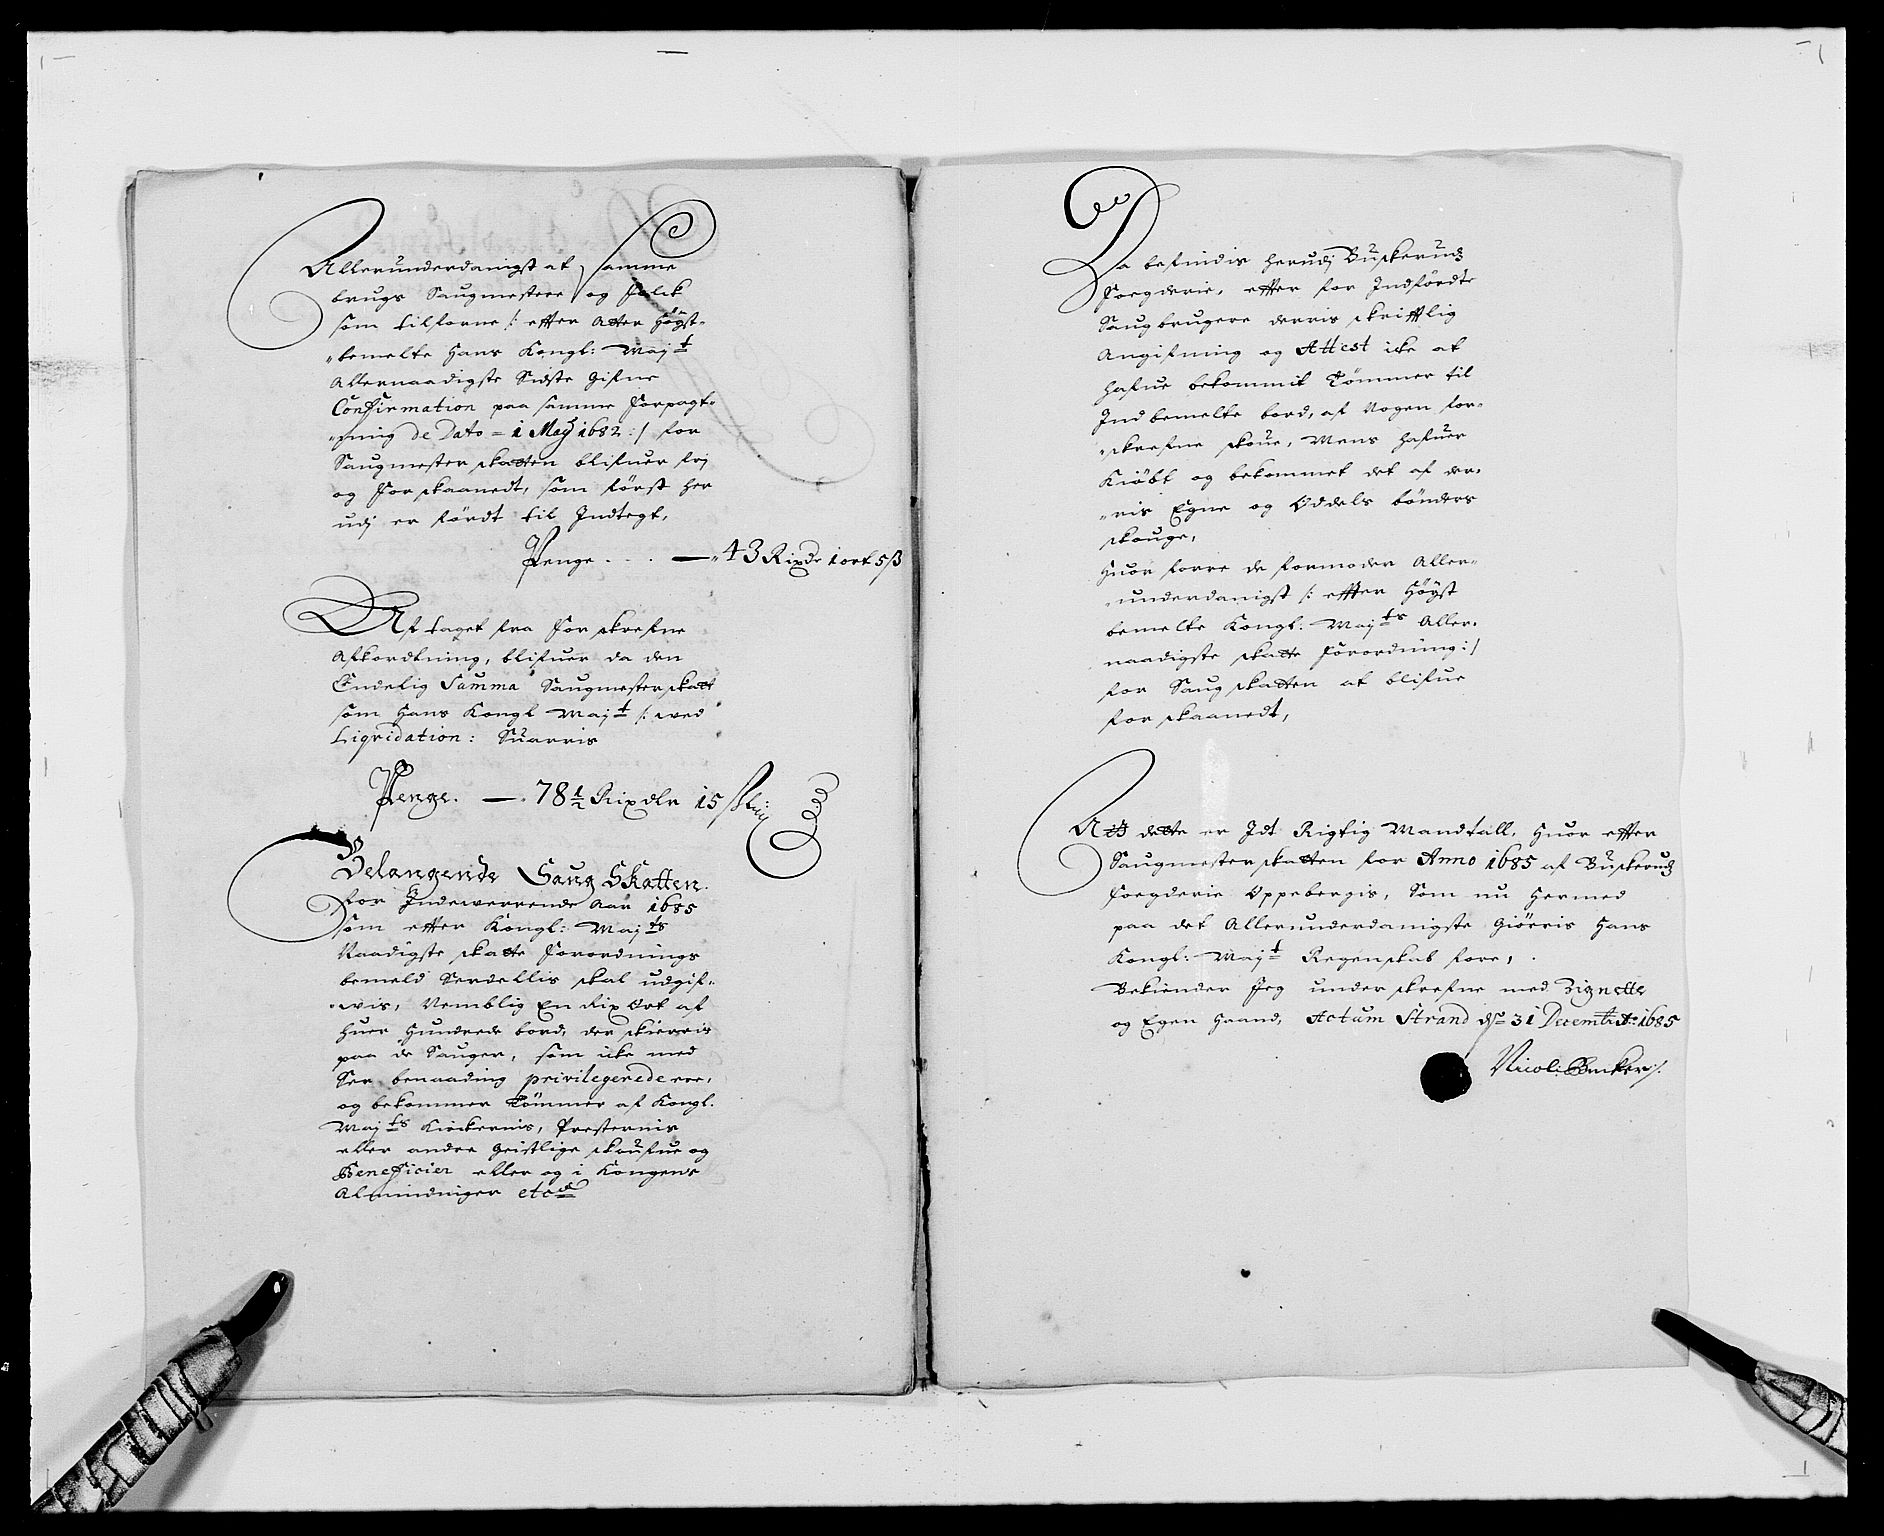 Allerunderdanigst at samme
brugs Saugmestere og Folck
som tilforne /: effter Atter Høgst-
"bemelte Hans Kongl: Maj:t
Allernaadigste Sidste Gifne
Confirmation paa samme Forpagt-
"ning de Dato = 1 Maÿ 1682 :/ for
Saugmester skatten blifuer frj
og Forskaanedt, som først her
udj er ført til Indtegt,
Penge . . . — "43 Rixdr 1 ort 5 ß
Af taget fra For skrefne
Afkordtning, blifuer da den
Endelig Summa Saugmester skatt
som Hans Kongl Maj:t /: wed
Liqvidation: Suarris
Penge. — . 78 ½ Rixdlr 15 ß
Belangende Saug Skatten.
for Indewerrende Aar 1685
som effter Kongl: Maj:ts
Naadigste skatte Forordnings
bemeld Serdellis skal udgif-
"wis, Nemblig En Rix Ort af
huer Hundrede bord, der skierris
paa de Sauger, som icke med
Ser benaading privilegerede ere,
og bekommer Tømmer af Kongl.
Maj:ts Kirckernis, Presternis
eller andre Geistlige skoufue og
Beneficier eller og i Kongens
Almindinger etc
Da befindis herudj Buskeruds
Foegderie, effter for Indførdte
Saugbrugere derris skrifftlig
Angifning og Attest icke at
hafue bekommit Tømmer til
Ind bemelte bord, af Nogen for-
"skrefne skoue, Mens hafuer
Kiøbt og bekommet det af der-
"ris Egne og Oddels bønders
skouge,
Huor forre de formoder Aller-
"underdanigst /: effter Høgst
bemelte Kongl. Maj:ts Aller-
naadigste skatte Forordning :/
for Saug skatten at blifue
for skaanedt,
At dette er Idt Rigtig Mandtall, Huor effter
Saugmester skatten for Anno 1685 af Buskeruds
Foegderie Oppebergis, Som nu Hermed
paa det Allerunderdanigste Giørris Hans
Kongl: Maj:t Regenskab fore,
Bekiender Jeg under skrefne med Zignette
og Egen Haand, Actum Strand ds 31 Decembr Ao 1685
Nicol: